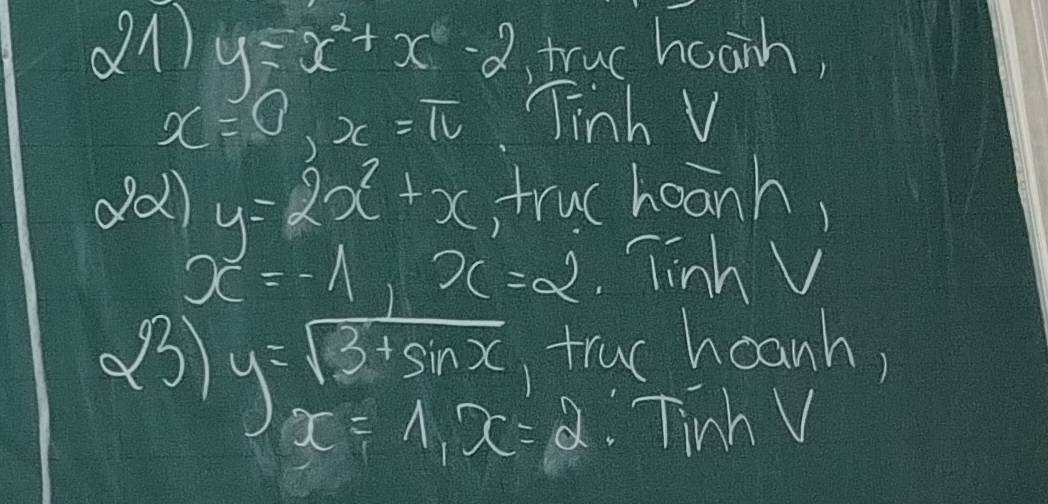 21) y = x² + x - 2, trục hoành,
x = 0, x = π. Tính V
22) y = 2x² + x, trục hoành,
x = -1, x = 2. Tính V
23) y = √(3 + sin x), trục hoành,
x = 1, x = 2. Tính V